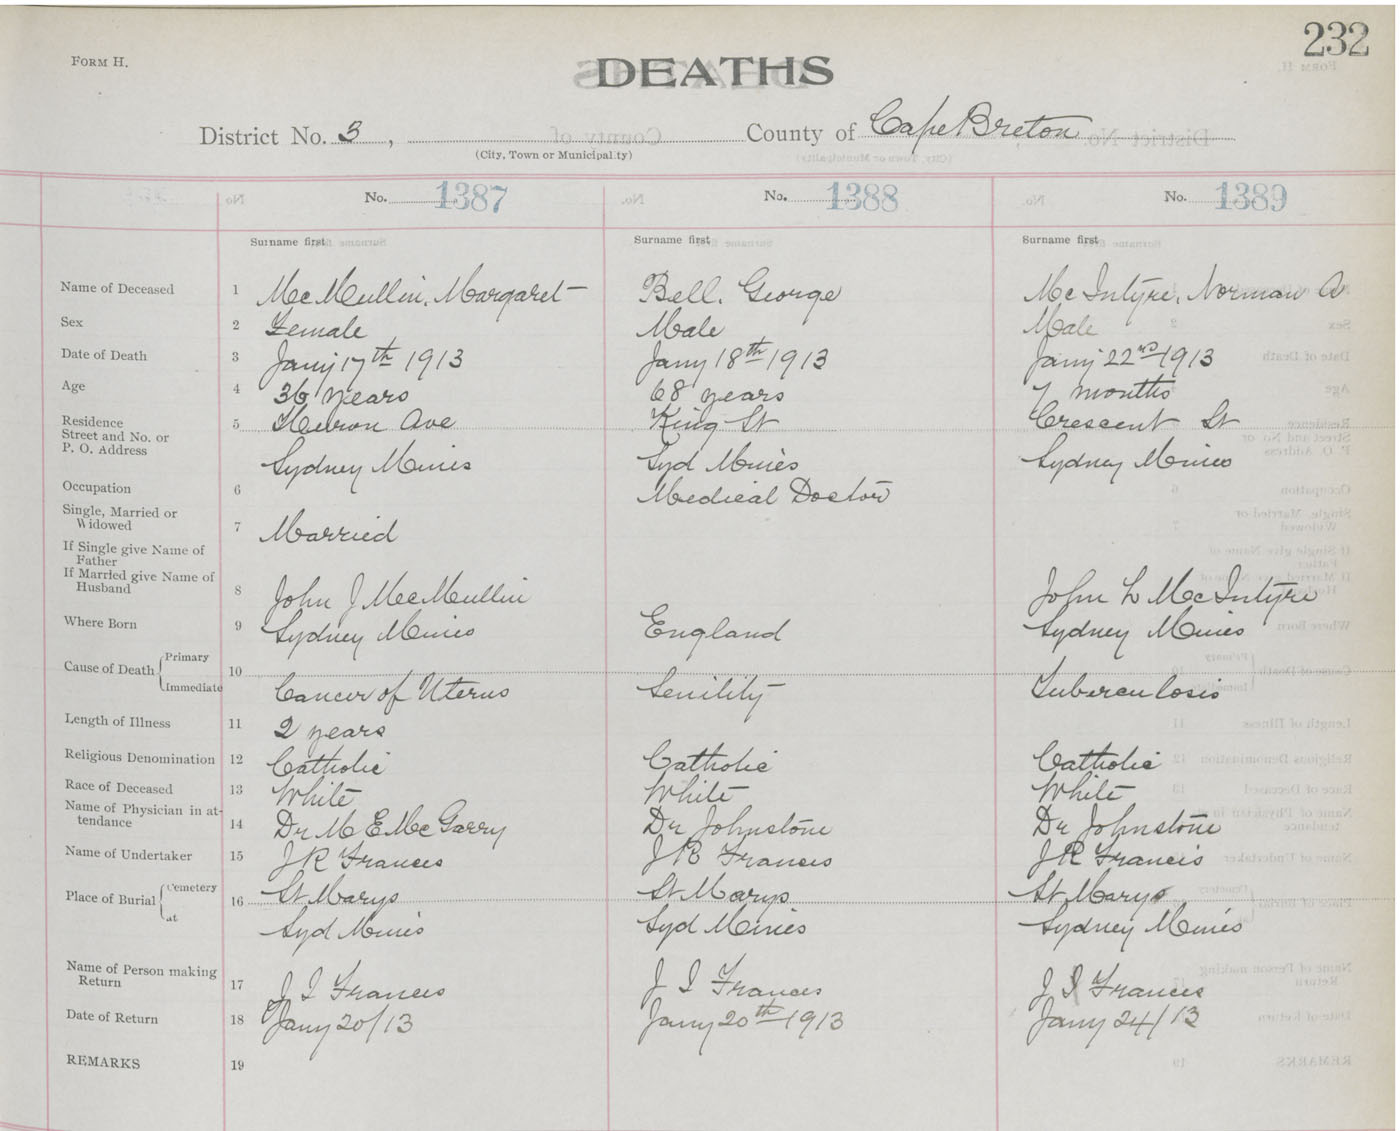 232
FORM H.
DEATHS
District No. 3, County of Cape Breton
(City, Town or Municipality)
No. 1387 No. 1388 No. 1389
Surname first Surname first Surname first
Name of Deceased 1 McMullin, Margaret Bell, George McIntyre, Norman A
Sex 2 Female Male Male
Date of Death 3 Jany 17th 1913 Jany 18th 1913 Jany 22nd 1913
Age 4 36 years 68 years 7 months
Residence 5 Huron Ave King St Crescent St
Street and No. or
P. O. Address Sydney Mines Syd Mines Sydney Mines
Occupation 6 Medical Doctor
Single, Married or
Widowed 7 Married
If Single give Name of
Father
If Married give Name of
Husband 8 John J McMullin John L McIntyre
Where Born 9 Sydney Mines England Sydney Mines
Cause of Death Primary 10
Immediate Cancer of Uterus Senility Tuberculosis
Length of Illness 11 2 years
Religious Denomination 12 Catholic Catholic Catholic
Race of Deceased 13 White White White
Name of Physician in at-
tendance 14 Dr M E McGarry Dr Johnstone Dr Johnstone
Name of Undertaker 15 J R Francis J R Francis J R Francis
Place of Burial Cemetery 16 St Marys St Marys St Marys
at Syd Mines Syd Mines Sydney Mines
Name of Person making
Return 17 J I Francis J I Francis J I Francis
Date of Return 18 Jany 20/13 Jany 20th 1913 Jany 24/13
REMARKS 19